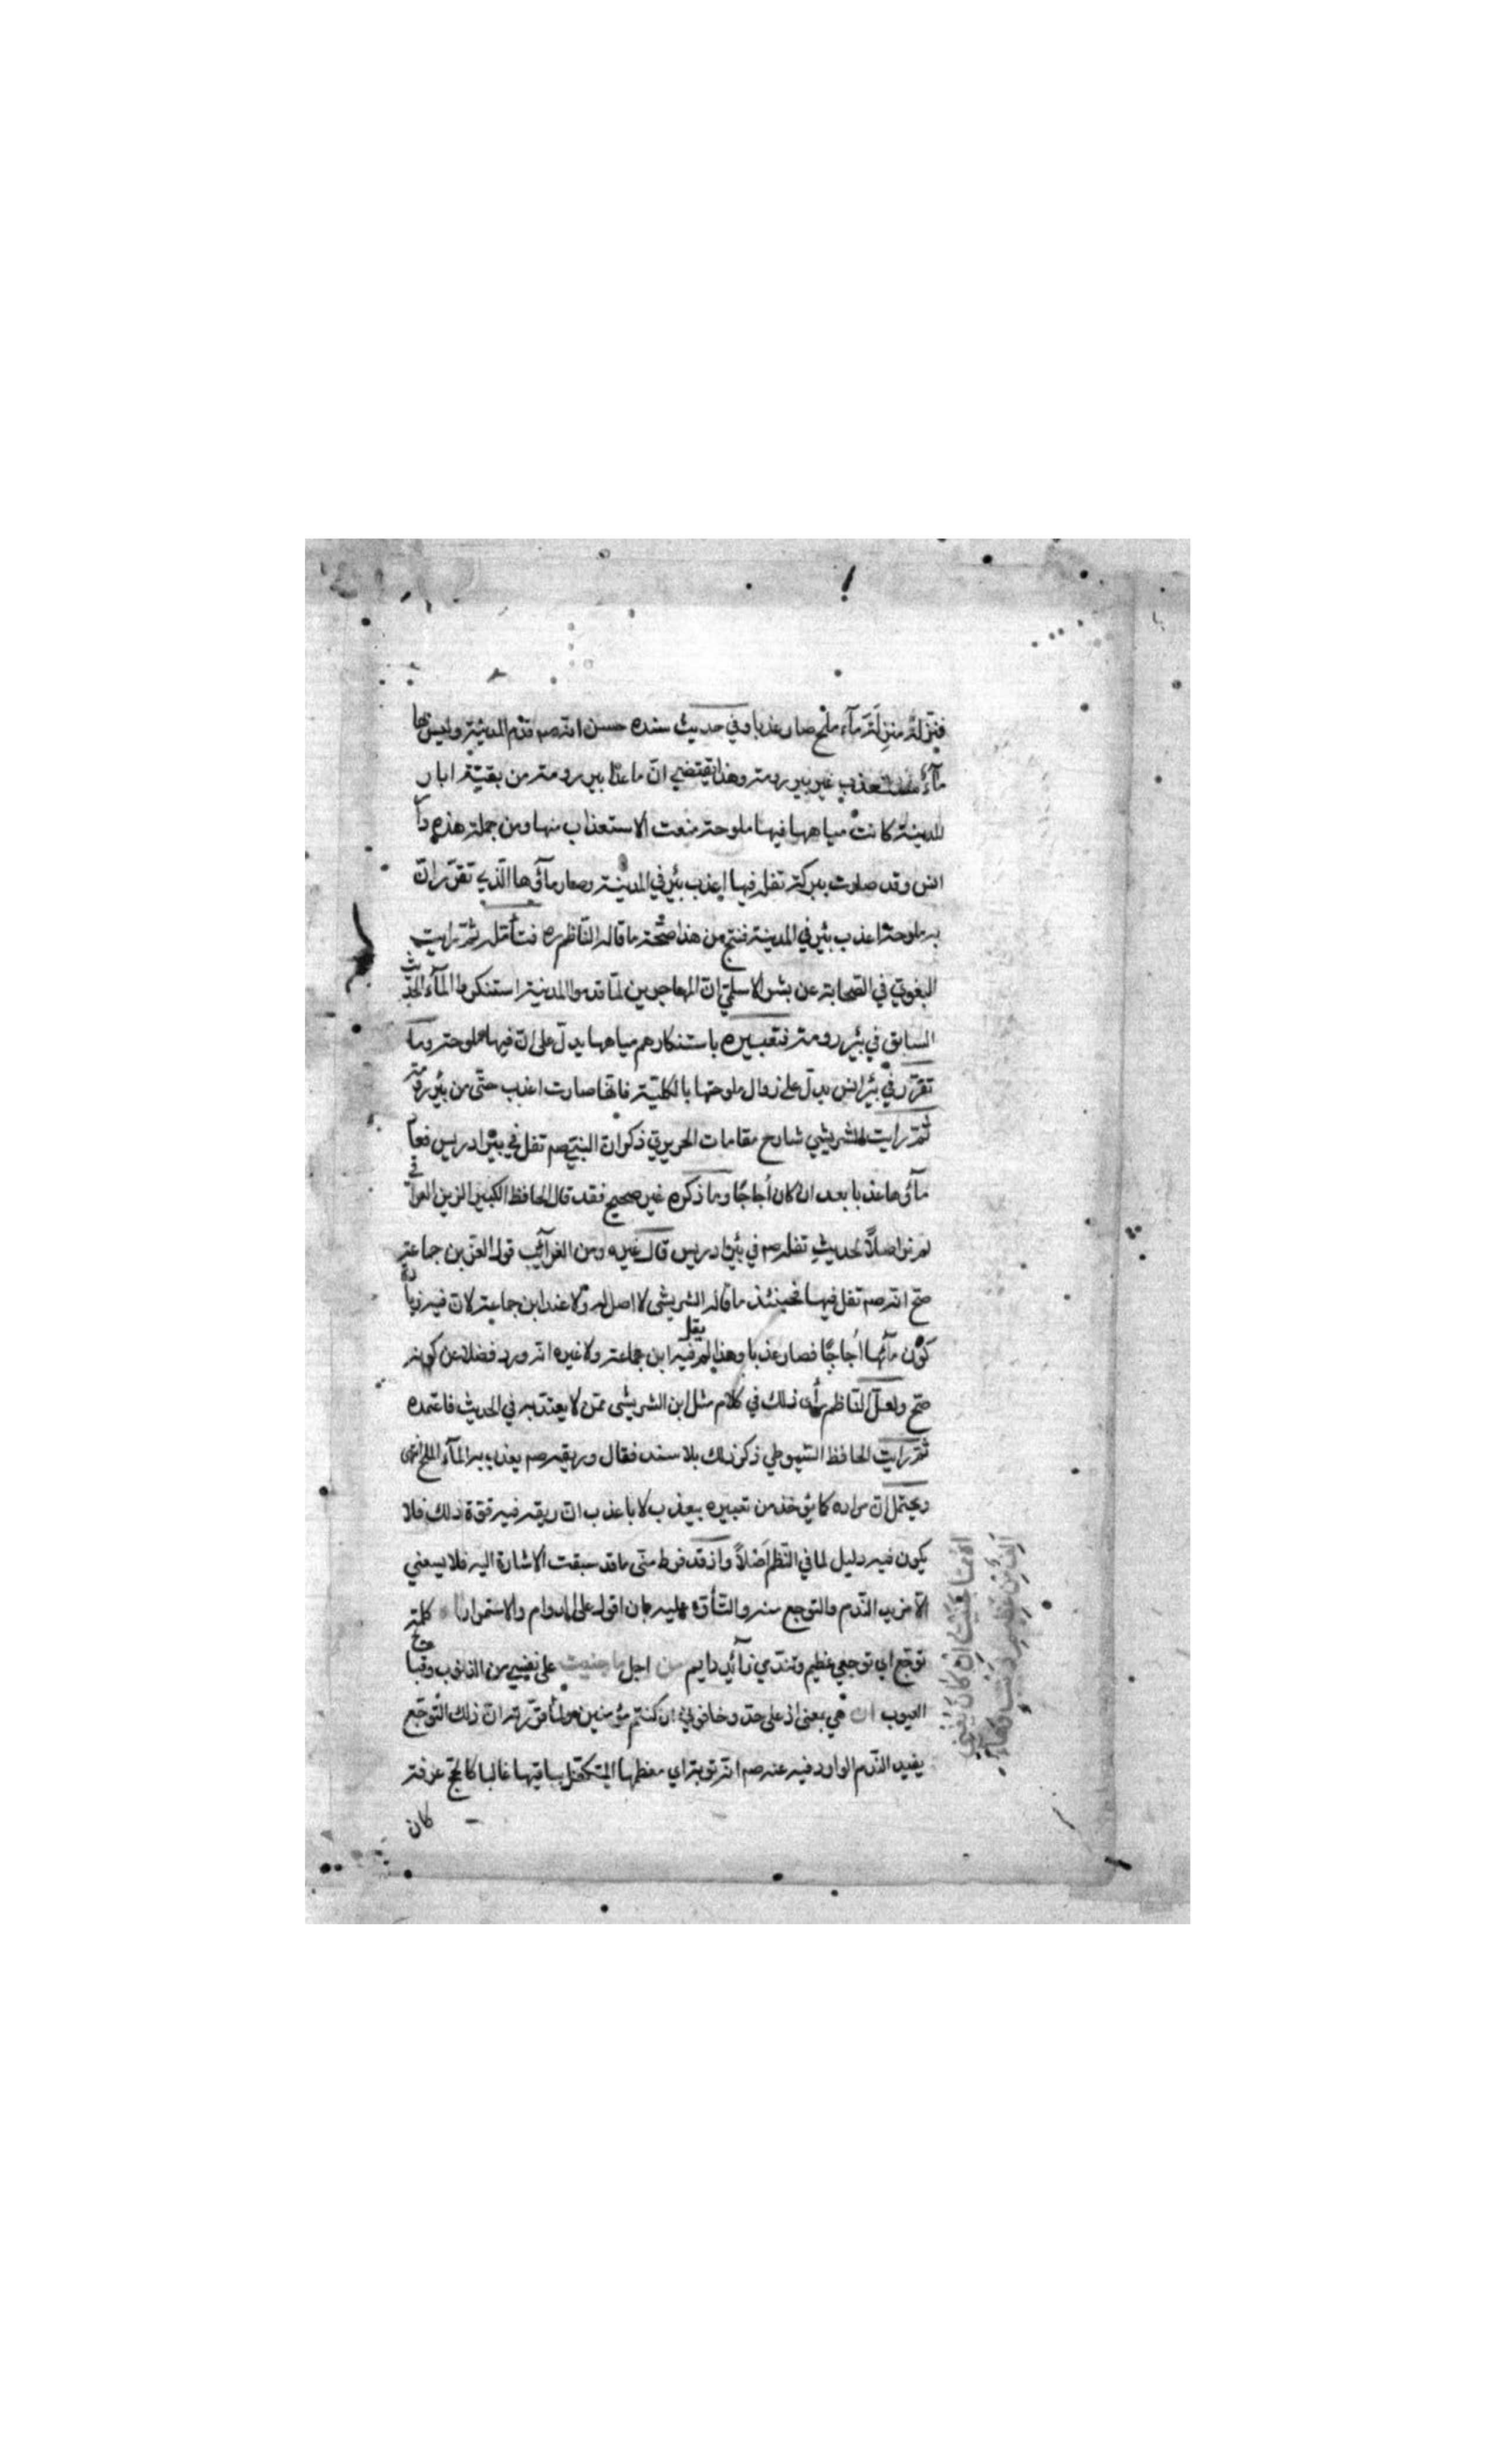 فنزله منزلة مآء ملح صار عذبا وفي حديث سنده حسن انه صم قدم المدينة وليس بها
مآء مستعذب غير بير رومة وهذا يقتضي انّ ما عدا بير رومة من بقيّة ابار
المدينة كانت مياهها فيها ملوحة منعت الاستعذاب منها ومن جملة هذه دار
انس وقد صارت ببركة تفله فيها اعذب بئر في المدينة وصار مآؤها الّذي تقرّر انّ
به ملوحة اعذب بئر في المدينة فنتج من هذا صحّة ما قاله النّاظم ره فتأمّله ثمّ رايت
البغوي في الصّحابة عن بشر الاسلمي انّ المهاجرين لمّا قدموا المدينة استنكروا المآء الحديث
السابق في بئر رومة فتعبيره باستنكارهم مياهها يدلّ على انّ فيها ملوحة وما
تقرّر في بئر انس يدلّ على زوال ملوحتها بالكليّة فانّها صارت اعذب حتّى من بئر رومة
ثمّ رايت الشريشي شارح مقامات الحريري ذكر انّ النبي صم تفل في بئر ادريس فعاد
مآؤها عذبا بعد ان كان أجاجًا وما ذكره غير صحيح فقد قال الحافظ الكبير الزين العراقي
لم نر اصلًا لحديث تفله صم في بئر ادريس قال غيره ومن الغرآئب قول العزّ بن جماعة
صحّ انه صم تفل فيها فحينئذ ما قاله الشريشى لا اصل له ولا عند ابن جماعة لانّ فيه زيادة
كون مآئها أجاجًا فصار عذبا وهذا لم يقل فيه ابن جماعة ولا غيره انه ورد فضلا عن كونه
صحّ ولعلّ النّاظم رأى ذلك في كلام مثل ابن الشريشى ممّن لا يعتدّ به في الحديث فاعتمده
ثمّ رايت الحافظ السّيوطي ذكر ذلك بلا سند فقال وريقه صم يعذب به المآء الملح انتهى
ويحتمل انّ مراده كما يؤخذ من تعبيره بيعذب لا باعذب انّ ريقه فيه قوّة ذلك فلا
يكون فيه دليل لما في النّظم أصْلًا واذ قد فرط منّى ما قد سبقت الاشارة اليه فلا يسعني
الّا مزيد النّدم والتوجع منه والتأوّه عليه بان اقول على الدوام والاستمرار كلمة
توجّع اي توجعي عظيم وتندّمي زآئد دايم من اجل ما جنيت على نفسي من الذنوب وقبايح
العيوب ان هي بمعنى اذ على حدّ وخافوني ان كنتم مؤمنين ولمّا قرّرته انّ ذلك التّوجّع
يفيد النّدم الوارد فيه عنه صم انه توبة اي معظمها المتكفّل بباقيها غالبا كالحجّ عرفة
كان